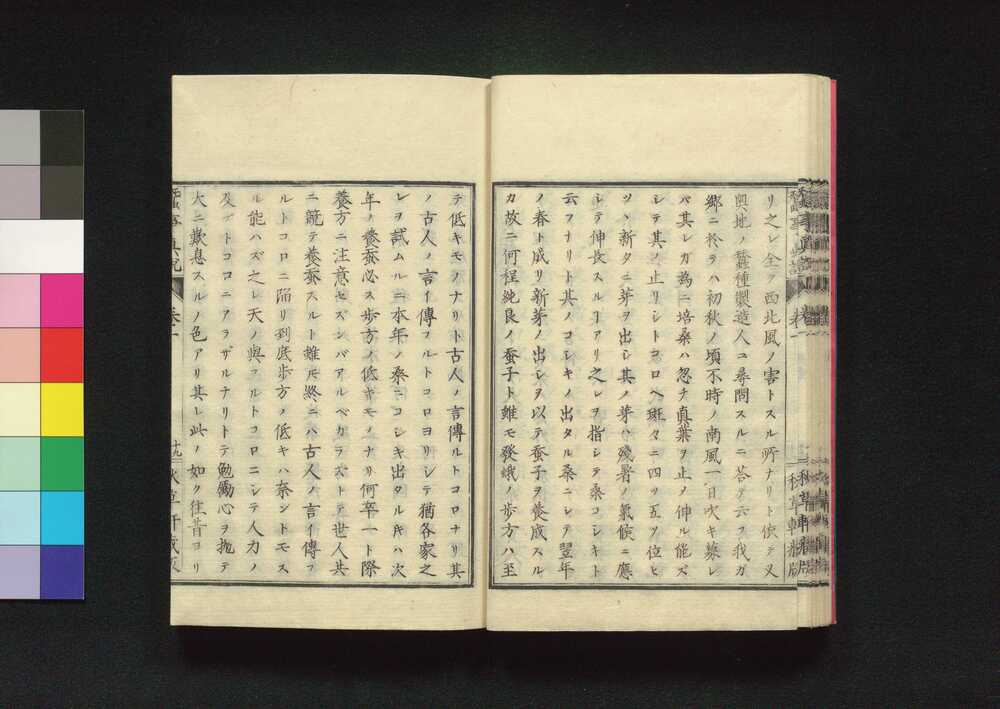 リ之レ全ク西北風ノ害トスル所ナリト依テ又
奥地ノ蠶種製造人ニ尋問スルニ答テ云フ我ガ
郷ニ於テハ初秋ノ頃不時ノ南風一日吹キ募レ
バ其レガ為ニ培桑ハ忽チ真葉ヲ止メ伸ル能ズ
シテ其ノ止リシトコロヘ斑々ニ四ツ五ツ位ヒ
ツヽ新タニ芽ヲ出シ其ノ芽ハ殘暑ノ氣候ニ應
シテ伸長スルヿアリ之レヲ指シテ桑コシキト
云フナリト其ノコシキノ出タル桑ニシテ翌年
ノ春ト成リ新芽ノ出シヲ以テ蚕子ヲ養成スル
カ故ニ何程純良ノ蚕子ト雖モ發蛾ノ歩方ハ至
蠶事真説 巻一 秋草軒藏版
テ低キモノナリト古人ノ言傳ルトコロナリ其
ノ古人ノ言イ傳フルトコロヨリシテ猶各家之
レヲ試ムルニ本年ノ桑ニコシキ出タル片ハ次
年ノ養蚕必ス歩方ノ低キモノナリ何卒一ト際
養方ニ注意セズンバアルベカラズトテ世人共
ニ競テ養蚕スルト雖片終ニハ古人ノ言イ傳フ
ルトコロニ陥リ到底歩方ノ低キハ奈ントモス
ル能ハズ之レ天ノ與フルトコロニシテ人力ノ
及ブトコロニアラザルナリトテ勉勵心ヲ抛テ
大ニ歎息スルノ色アリ其レ此ノ如ク往昔ヨリ
十九